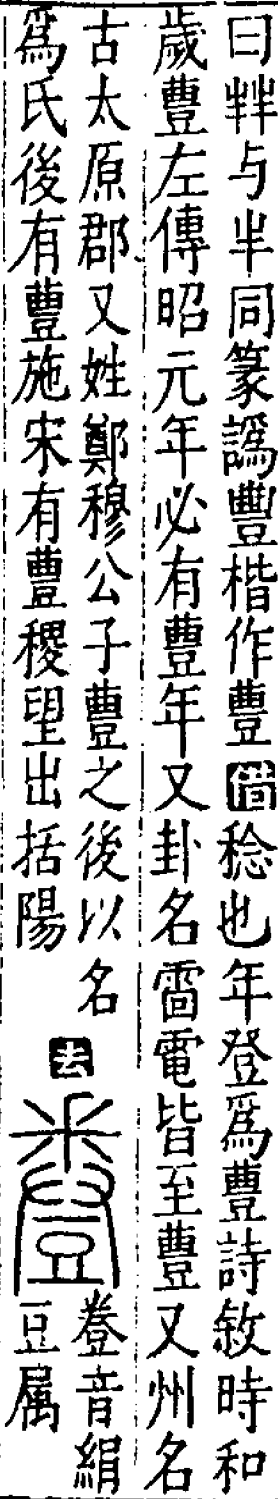 曰𦍒与半同篆譌豐楷作豊借稔也年登爲豊詩敘時和
歲豊左傳昭元年必有豊年又卦名雷電皆至豊又州名
古太原郡又姓鄭穆公子豊之後以名
爲氏後有豊施宋有豊稷望出括陽
去
豋音絹
豆属